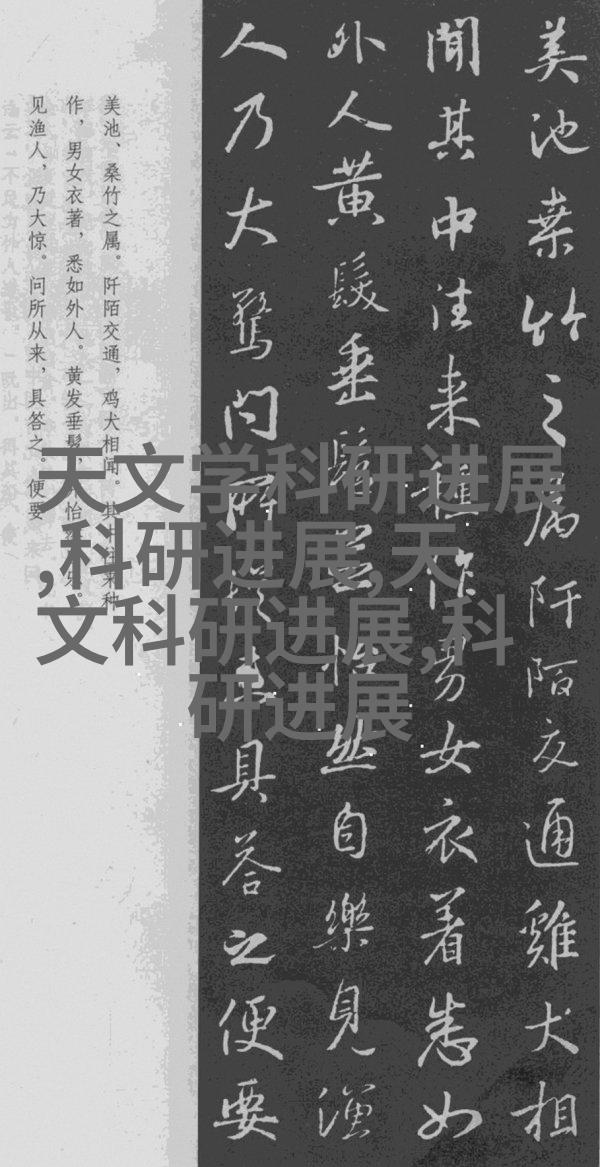 美池桒竹之属阡陌交通雞犬相
聞其中往来種作男女衣着悉如
外人黄髮垂髫並怡然自樂見漁
人乃大驚問所從来具答之便要
美池、桑竹之属。阡陌交通，鸡犬相闻。其中往来种
作，男女衣著，悉如外人。黄发垂髫，并怡然自乐。
见渔人，乃大惊。问所从来，具答之。便要
天文学科研进展
,科研进展,天
文科研进展,科
研进展